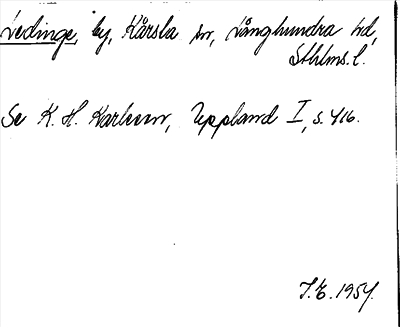 Ledinge, by, Kårsta sn, Långhundra hd,
Sthlms. l.
Se K. H. Karlsson, Uppland I, s. 416.
J. E. 1954.